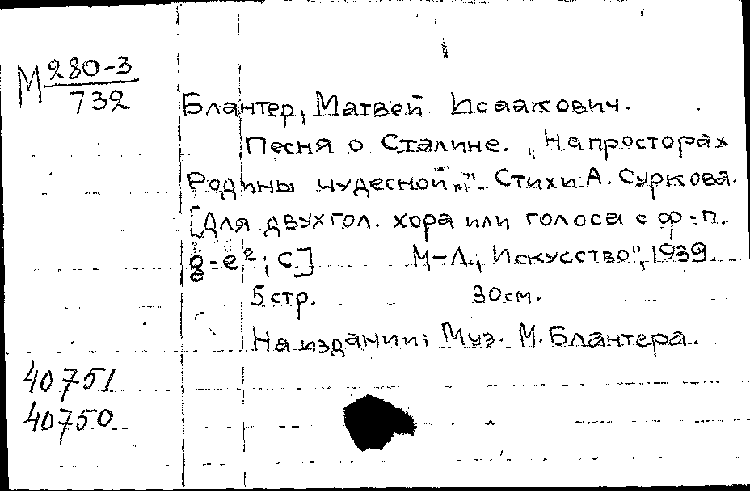 М 280-3
732
Блантер, Матвей Исаакович.
Песня о Сталине. „На просторах
Родины чудесной..." Стихи А. Суркова.
[Для двухгол. хора или голоса с ф.-п.
g-e²; C] М-Л., „Искусство", 1939.
5 стр. 30 см.
На издании: Муз. М. Блантера.
40751
40750